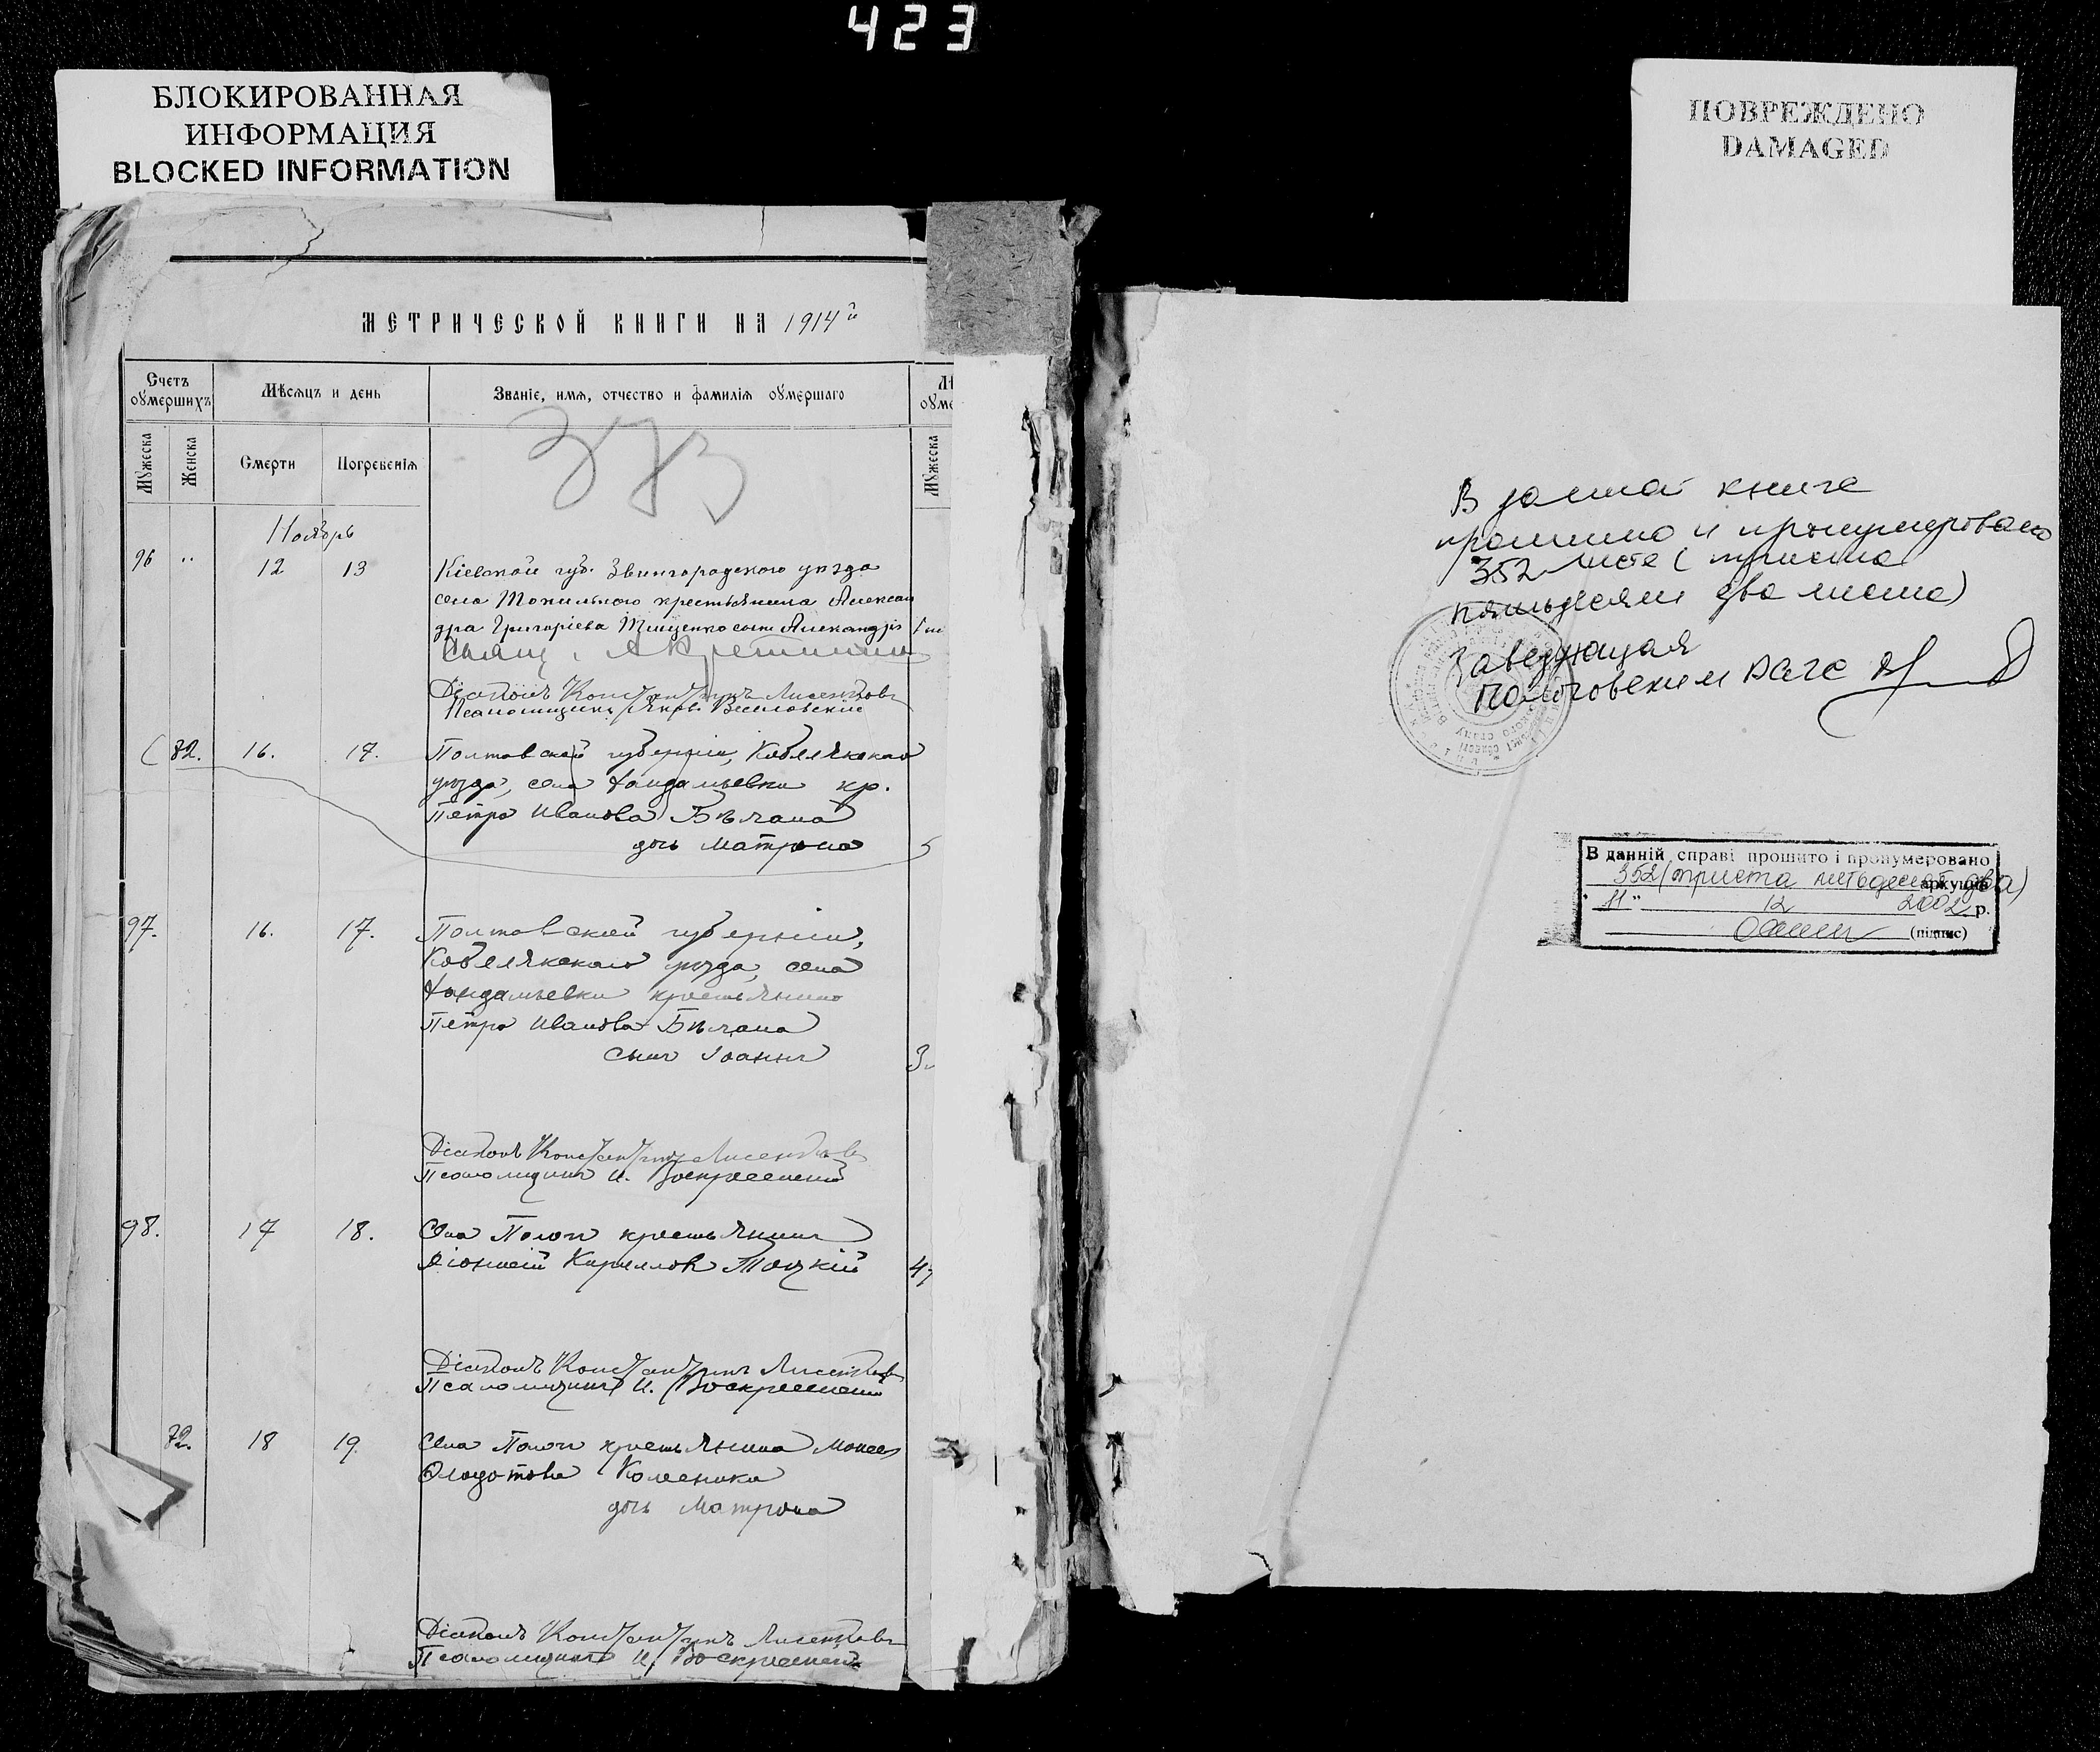 423
БЛОКИРОВАННАЯ
ИНФОРМАЦИЯ
BLOCKED INFORMATION
ПОВРЕЖДЕНО
DAMAGED
МЕТРИЧЕСКОЙ КНИГИ НА 1914й
Счетъ оумершихъ
Мѣсяцъ и день
Званіе, имя, отчество и фамилія оумершаго
Мужеска
Женска
Смерти
Погребенія
Мужеска
373
Ноябрь
96 " 12 13 Кіевской губ. Звенигородского уезда
села Топильного крестьянина Алексан
дра Григоріева Тищенко сынъ Александръ
Свящ.
Діаконъ Константинъ Лисенков
Псаломщикъ Яков Веселовскій
82. 16. 17. Полтавской губерніи, Кобелякскаго
уезда, села Хандалеевки кр.
Петра Иванова Бѣлана
дочь Матрона
97. 16. 17. Полтавской губерніи,
Кобелякскаго уезда, села
Хандалеевки крестьянина
Петра Иванова Бѣлана
сынъ Іоаннъ
Діаконъ Константинъ Лисенков
Псаломщикъ И. Воскресенскій
98. 17 18. Села Пологи крестьянинъ
Діонисій Кириллов Тоцкій
Діаконъ Константинъ Лисенков
Псаломщикъ И. Воскресенскій
82. 18 19 Села Пологи крестьянина Моисея
Коленика
дочь Матрона
Діаконъ Константинъ Лисенков
Псаломщикъ И. Воскресенскій
В данной книге
прошито и пронумеровано
352 листа (триста
пятьдесят два листа)
Заведующая
Пологовским ЗАГС
В данній справі прошито і пронумеровано
352 (триста п'ятдесят два) аркушів
"11" 12 2002 р.
(підпис)